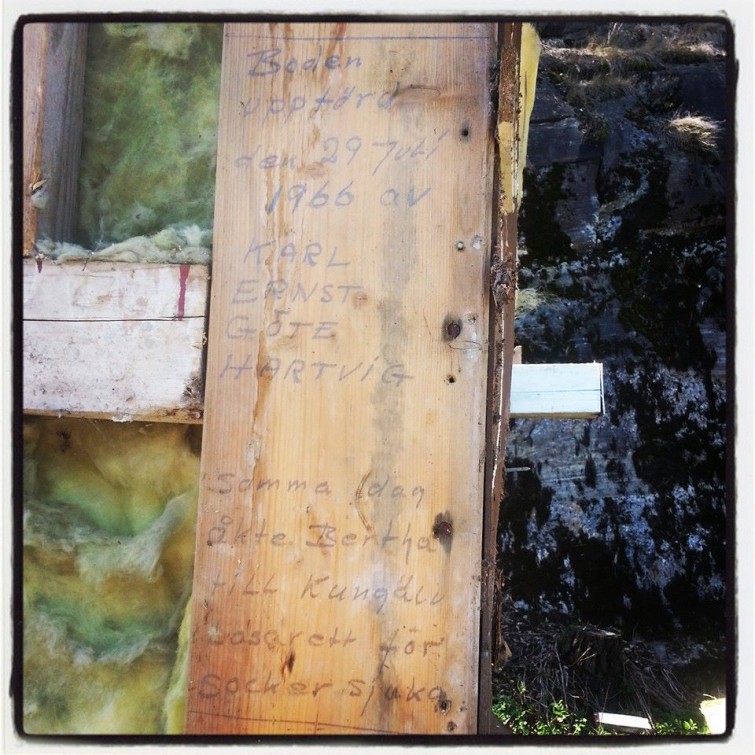 Boden
uppförd
den 29 Juli
1966 av
KARL
ERNST
GÖTE
HARTVIG
Samma dag
åkte Bertha
till Kungälv
lasarett för
socker sjuka